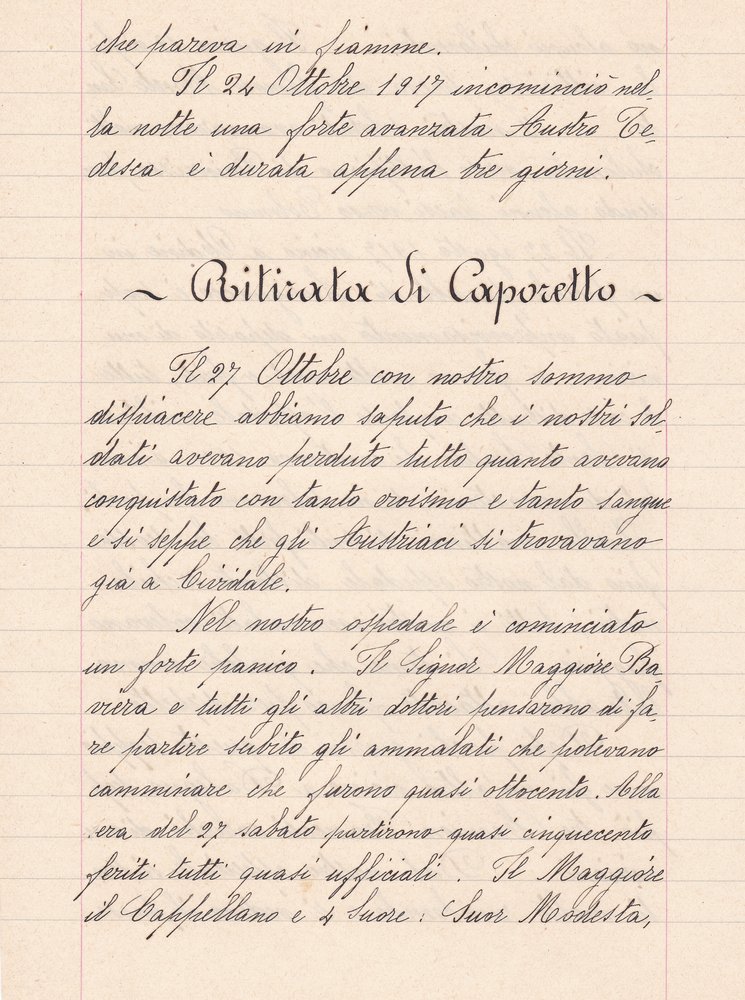 che pareva in fiamme.
Il 24 Ottobre 1917 incominciò nel-
la notte una forte avanzata Austro Te-
desca è durata appena tre giorni.
~ Ritirata di Caporetto ~
Il 27 Ottobre con nostro sommo
dispiacere abbiamo saputo che i nostri sol-
dati avevano perduto tutto quanto avevano
conquistato con tanto eroismo e tanto sangue
e si seppe che gli Austriaci si trovavano
già a Cividale.
Nel nostro ospedale è cominciato
un forte panico. Il Signor Maggiore Ba-
viera e tutti gli altri dottori pensarono di fa-
re partire subito gli ammalati che potevano
camminare che furono quasi ottocento. Alla
era del 27 sabato partirono quasi cinquecento
feriti tutti quasi ufficiali. Il Maggiore
il Cappellano e 4 Suore: Suor Modesta,